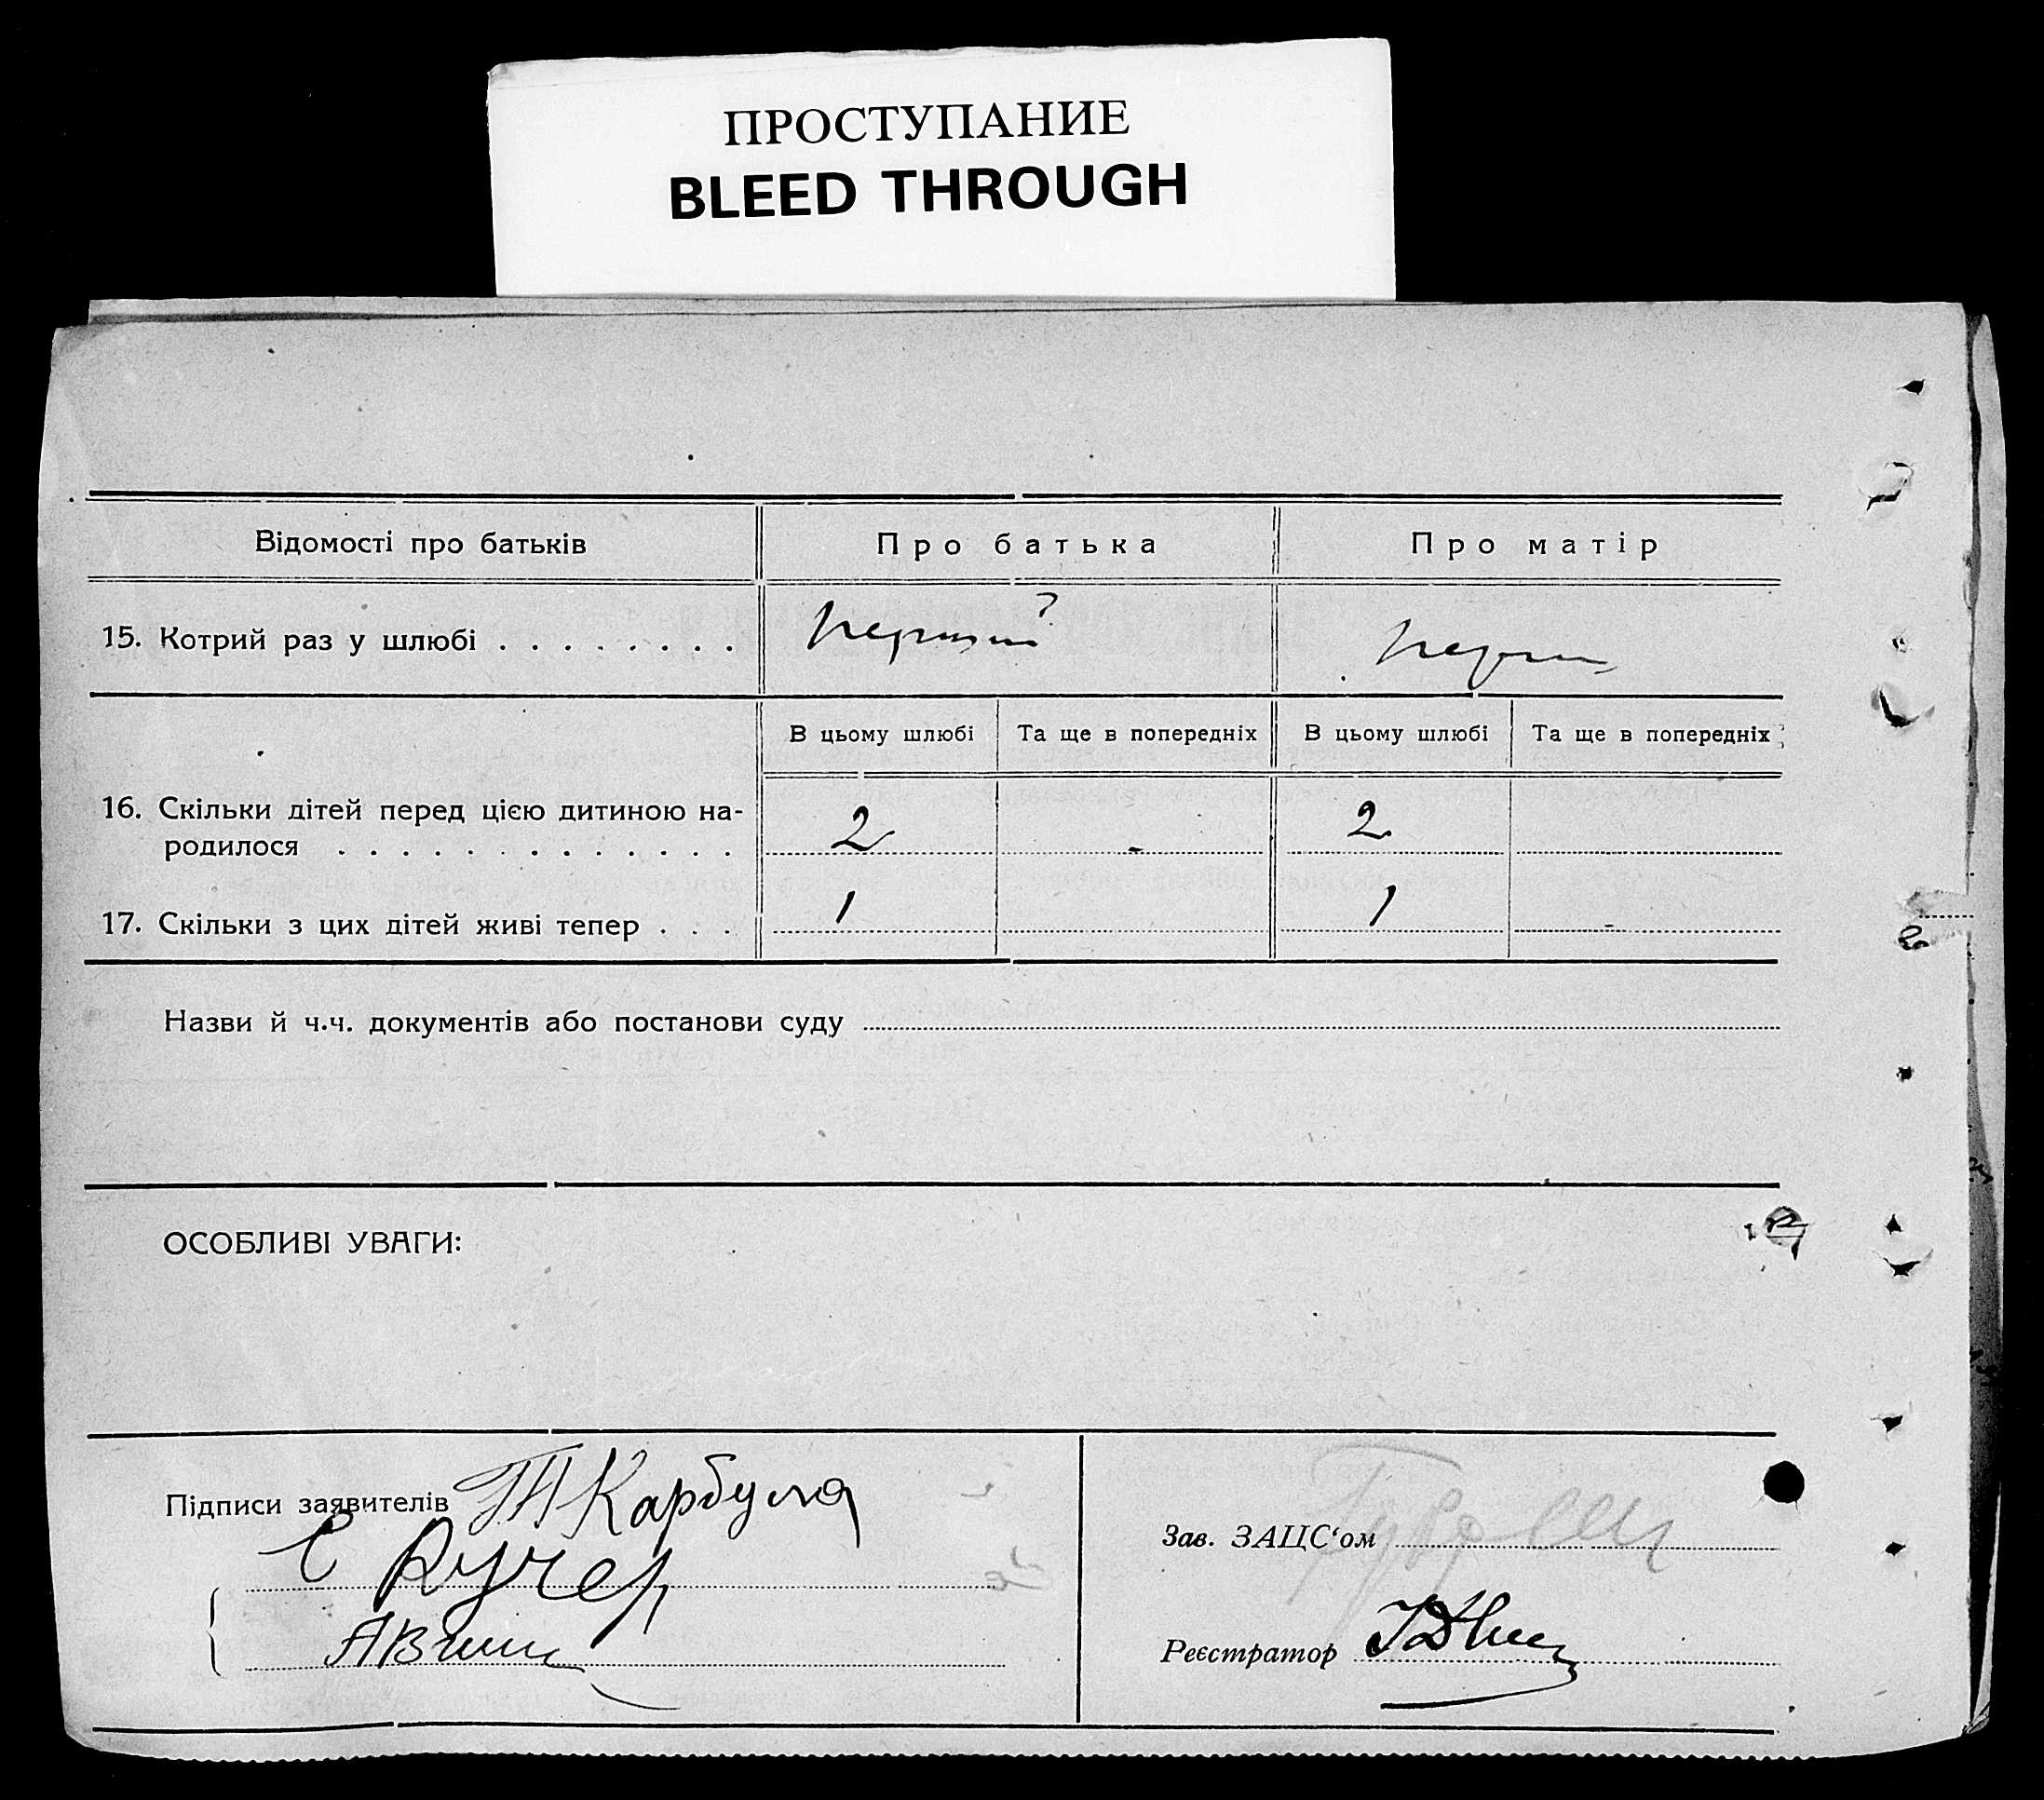 ПРОСТУПАНИЕ
BLEED THROUGH
Відомості про батьків
Про батька
Про матір
15. Котрий раз у шлюбі . . . . . . . .
перший
перш
В цьому шлюбі
Та ще в попередніх
В цьому шлюбі
Та ще в попередніх
16. Скільки дітей перед цією дитиною на-
родилося . . . . . . . . . . . . .
2
-
2
17. Скільки з цих дітей живі тепер . . .
1
1
-
Назви й ч.ч. документів або постанови суду
ОСОБЛИВІ УВАГИ:
Підписи заявителів
Карбула
Є Кучер
Зав. ЗАЦС‘ом
Реєстратор